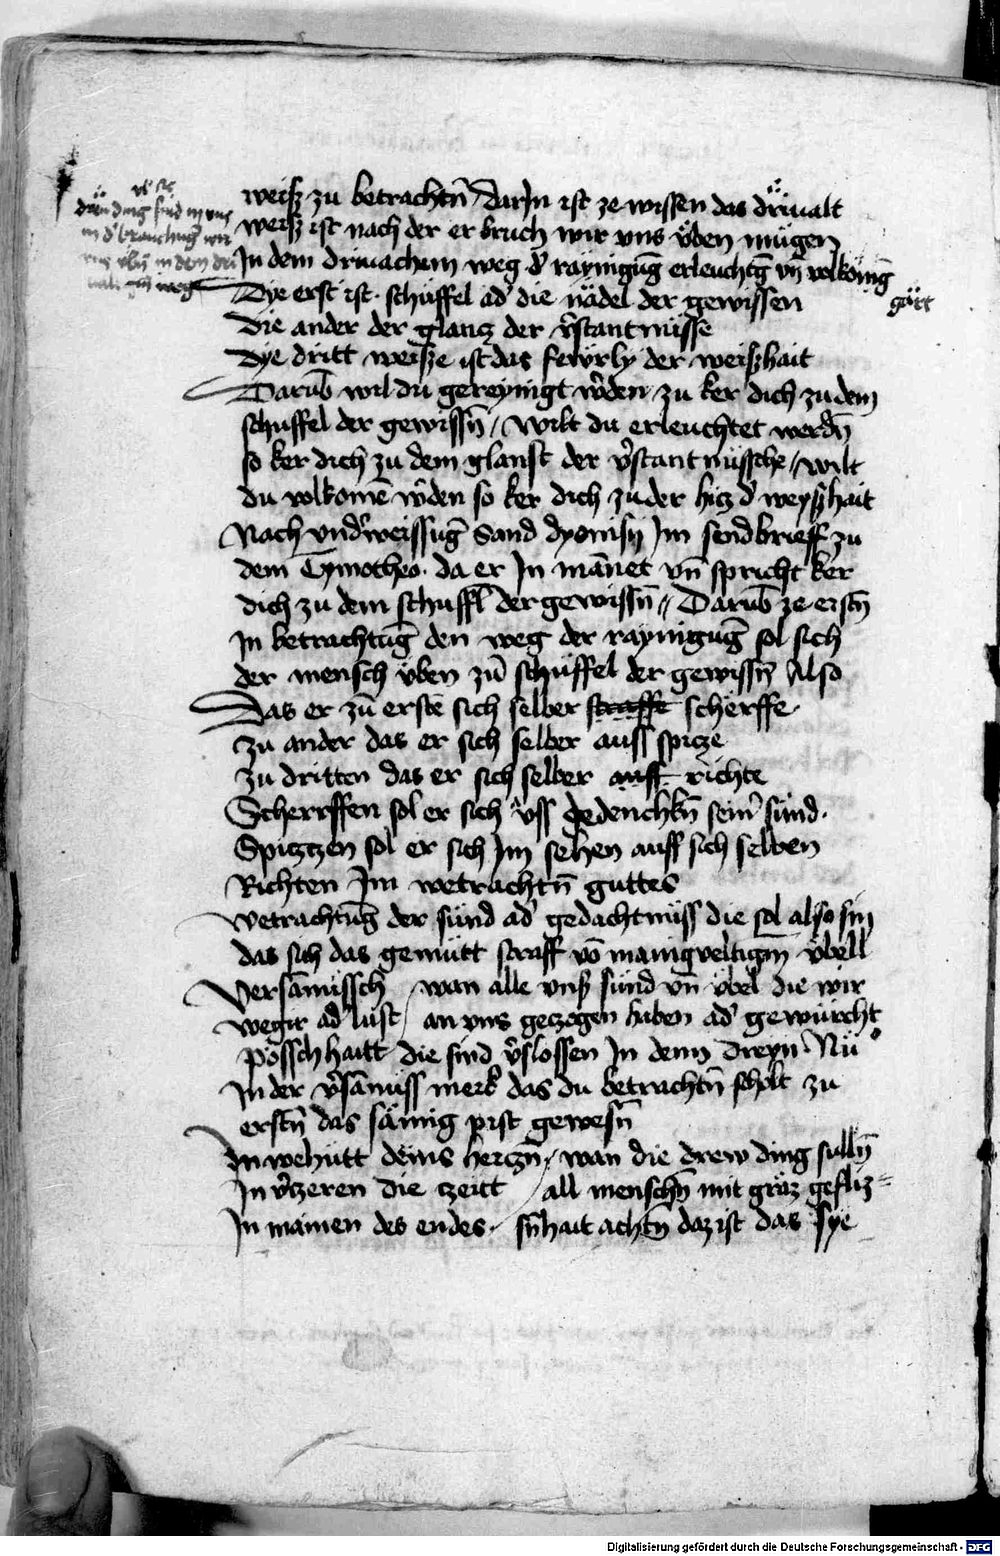 weisz zu betrachtn̄ / darJn ist ze wissen das driualt
weisz ist nach der er bruch wir vns vͤben mügen
Jn dem driuachem weg d' raynigūg erleuchtḡ vn̄ volkōmiḡ
Dye erst ist · schuffel ad' die nädel der gewissen
die ander der glantz der v'stantnüsse
dye dritt weisze ist das fewrly der weiszhait
Darūb wildu gereynigt w'den / zu ker dich zu dem
schuffel der gewissn̄ / wilt du erleuchtet werdn̄
so ker dich zu dem glanst der v'stantnüssche // wilt
du volkomē w'den so ker dich zu der hitz d' weyszhait
Nach vnd'weissūg Sand dyonisy Jm sendbrieff zu
dem Tymotheo · da er Jn mānet vn̄ spricht ker
dich zu dem schuffl der gewissn̄ // Darūb ze erstn̄
Jn betrachtūg den weg der raynigūg sol sich
der mensch vͤben zū schüffel der gewissn̄ Also
Das er zū erstē sich selber straffe schërffe ·
zu ander das er sich selber auff spitze
zu dritten das er sich selber auff richte
Scherrffen sol er sich vss gedenchkn̄ sein' sünd ·
Spitzzen sol er sich Jm sehen auff sich selben
Richten Jm wetrachtn̄ guttes
wetrachtūg der sünd ad' gedachtnüss die sol also sin
das sich das gemütt straff vō manigueltigm̄ vͤbell
Versāmüssch / wan alle vnsz sünd vn̄ vͤbel die wir
wegir ad' lust / an vns gezogen haben ad' gewürcht
pössch haitt die sind v'slossen Jn denn dreyn · Nü
Jn der v'sāmüss merk das du betrachtn̄ scholt zu
erstn̄ das säimig pist gewesn̄
Jn wehütt deins hertzn̄ / wan die drew ding sulln̄
Jn v'tzeren die tzeitt / all menschn̄ mit gröz gefliz=
Jn mainen des endes · sn̄hait achtn̄ daz ist das sye
gött
Digitalisierung gefördert durch die Deutsche Forschungsgemeinschaft · DFG